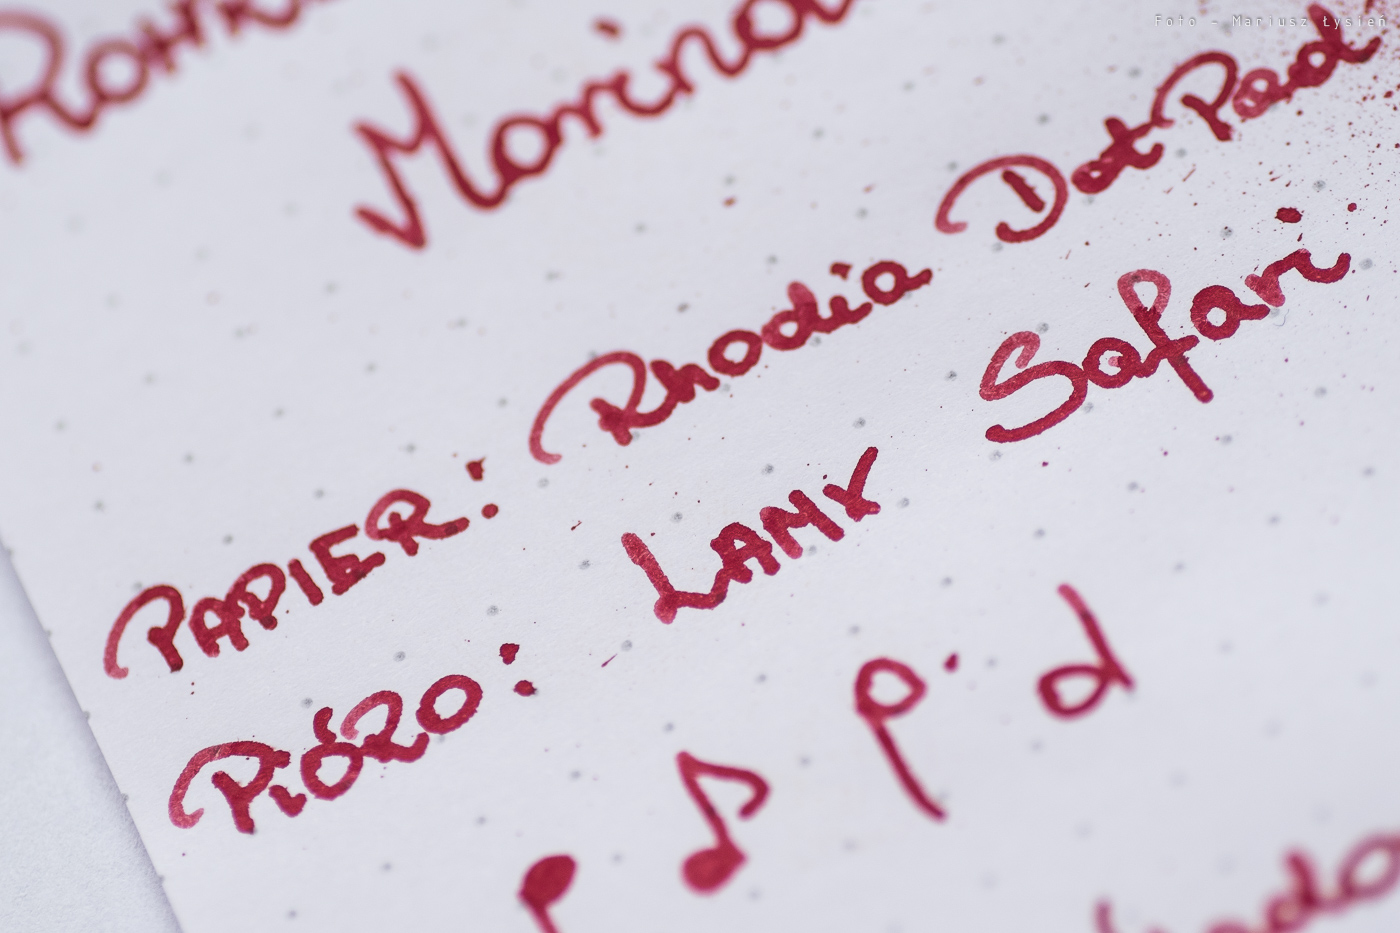 Foto - Mariusz Łysień
PAPIER: Rhodia Dot Pad
PIÓRO: LAMY Safari